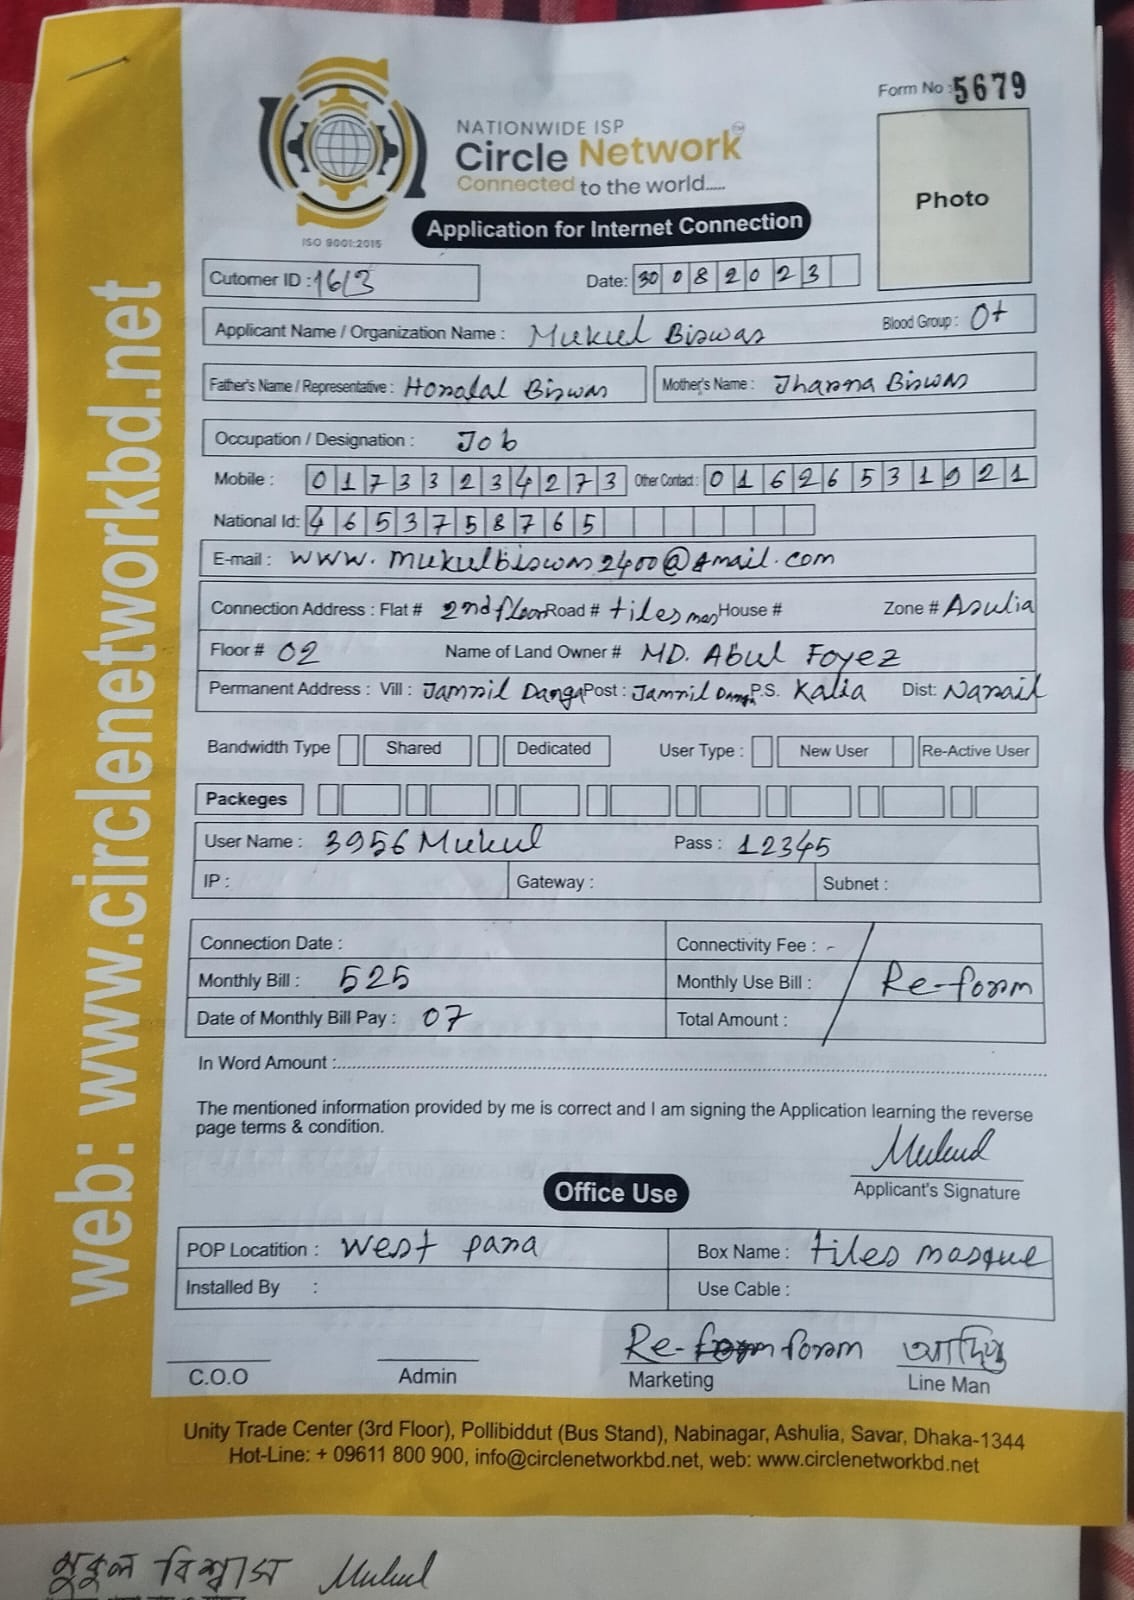 Form No : 5679
NATIONWIDE ISP
Circle Network
Connected to the world.....
ISO 9001:2015
Application for Internet Connection
Photo
Cutomer ID : 1613
Date: 30 0 8 2 0 2 3
Applicant Name / Organization Name : Mukul Biswas
Blood Group : O+
Father's Name / Representative : Horalal Biswas
Mother's Name : Jharna Biswas
Occupation / Designation : Job
Mobile : 01733234273 Other Contact : 01626531921
National Id: 4653758765
E-mail : www.mukulbiswas2400@gmail.com
Connection Address : Flat # 2nd floor Road # tiles mas House # Zone # Asulia
Floor # 02 Name of Land Owner # MD. Abul Foyez
Permanent Address : Vill : Jamril Danga Post : Jamril Danga P.S. Kalia Dist: Narail
Bandwidth Type Shared Dedicated User Type : New User Re-Active User
Packeges
User Name : 3956Mukul Pass : 12345
IP : Gateway : Subnet :
Connection Date : Connectivity Fee : -
Monthly Bill : 525 Monthly Use Bill : Re-form
Date of Monthly Bill Pay : 07 Total Amount :
In Word Amount :
The mentioned information provided by me is correct and I am signing the Application learning the reverse
page terms & condition.
Mukul
Applicant's Signature
Office Use
POP Locatition : West para Box Name : tiles masque
Installed By : Use Cable :
Re-form
C.O.O Admin Marketing Line Man
Unity Trade Center (3rd Floor), Pollibiddut (Bus Stand), Nabinagar, Ashulia, Savar, Dhaka-1344
Hot-Line: + 09611 800 900, info@circlenetworkbd.net, web: www.circlenetworkbd.net
web: www.circlenetworkbd.net
মুকুল বিশ্বাস Mukul